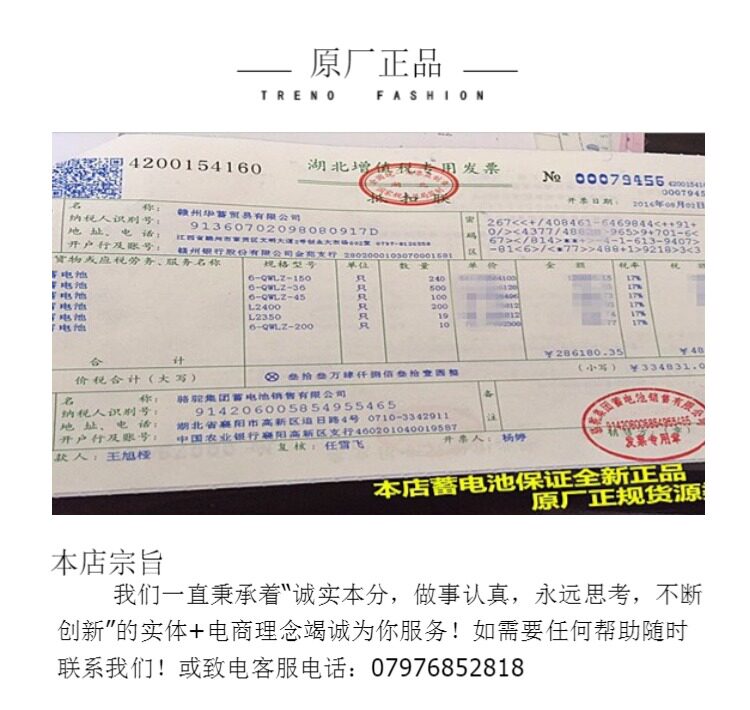 原厂正品
TRENO FASHION
4200154160 湖北增值税专用发票 № 00079456 4200154160
抵扣联
开票日期:
名 称: 赣州华蓄贸易有限公司
纳税人识别号: 91360702098080917D
地 址、电 话:
开户行及账号: 赣州银行股份有限公司金苑支行 2802000103070001581
密码区
货物或应税劳务、服务名称 规格型号 单位 数量 单价 金额 税率 税
蓄电池 6-QWLZ-150 只 240 17%
蓄电池 6-QWLZ-36 只 500 17%
蓄电池 6-QWLZ-45 只 100 17%
蓄电池 L2400 只 200 17%
蓄电池 L2350 只 19 17%
蓄电池 6-QWLZ-200 只 10 17%
合 计 ￥286180.35 ￥48
价税合计(大写) ⊗ 叁拾叁万肆仟捌佰叁拾壹圆整 (小写) ￥334831.0
名 称: 骆驼集团蓄电池销售有限公司
纳税人识别号: 914206005854955465
地 址、电 话: 湖北省襄阳市高新区追日路4号 0710-3342911
开户行及账号: 中国农业银行襄阳高新区支行460201040019587
备注
骆驼集团蓄电池销售有限公司
发票专用章
款人: 王旭桠 复核: 任雪飞 开票人: 杨婷
本店蓄电池保证全新正品
原厂正规货源
本店宗旨
我们一直秉承着“诚实本分，做事认真，永远思考，不断
创新”的实体+电商理念竭诚为你服务！如需要任何帮助随时
联系我们！或致电客服电话：07976852818